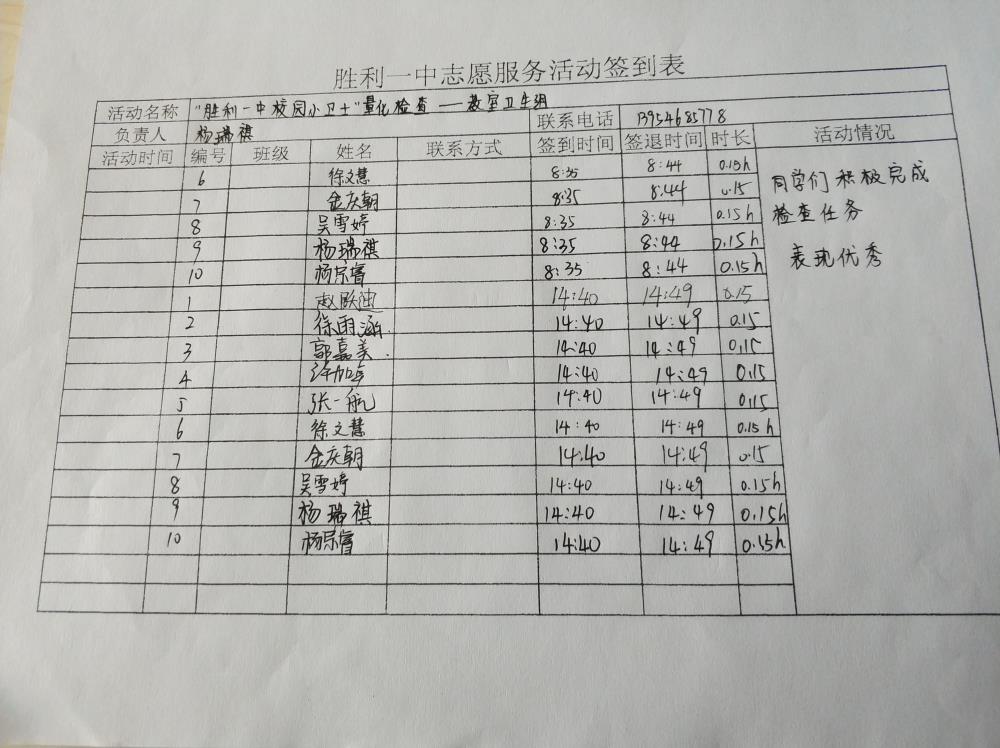 胜利一中志愿服务活动签到表
活动名称 "胜利一中校园小卫士"量化检查——教室卫生组
负责人 杨瑞祺 联系电话 13954685778
活动时间 编号 班级 姓名 联系方式 签到时间 签退时间 时长 活动情况
6 徐文慧 8:35 8:44 0.15h
7 金庆朝 8:35 8:44 0.15
8 吴雪婷 8:35 8:44 0.15h
9 杨瑞祺 8:35 8:44 0.15h
10 杨宗睿 8:35 8:44 0.15h
1 赵跃迪 14:40 14:49 0.15
2 徐雨涵. 14:40 14:49 0.15
3 郭嘉美. 14:40 14:49 0.15
4 14:40 14:49 0.15
5 张一航 14:40 14:49 0.15
6 徐文慧 14:40 14:49 0.15h
7 金庆朝 14:40 14:49 0.15
8 吴雪婷 14:40 14:49 0.15h
9 杨瑞祺 14:40 14:49 0.15h
10 杨宗睿 14:40 14:49 0.15h
同学们积极完成
检查任务
表现优秀